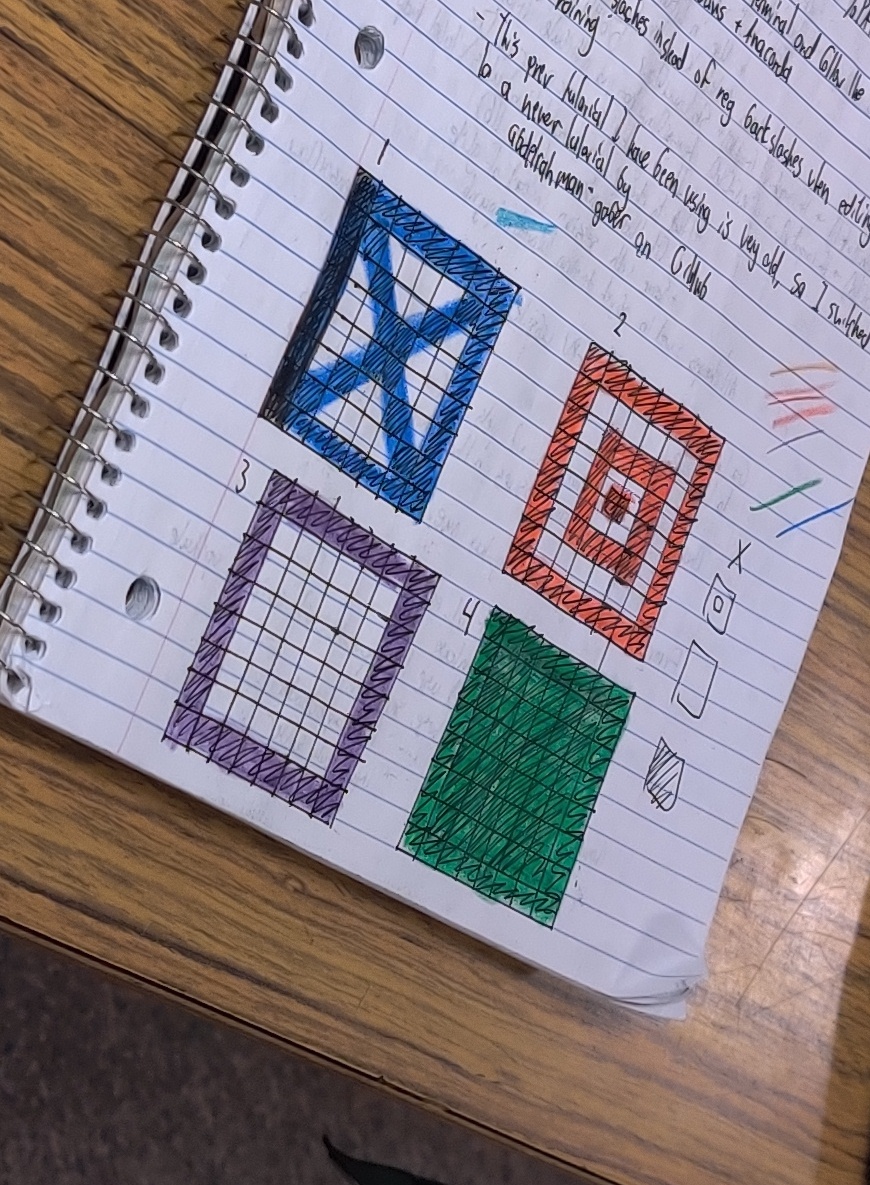 terminal and follow the
+ Anaconda
slashes instead of reg backslashes when editing
- This prev tutorial I have been using is very old, so I switched
to a newer tutorial by
abdelrahman-gaber on Github
1
2
3
4
X